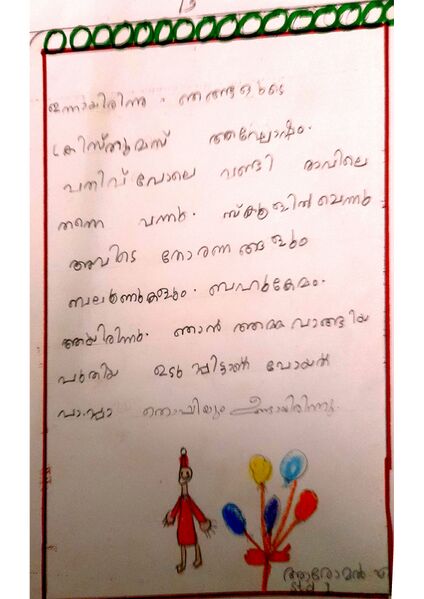 ഇന്നായിരിന്നു. ഞങ്ങളുടെ
ക്രിസ്തുമസ് ആഘോഷം.
പതിവ് പോലെ വണ്ടി രാവിലെ
തന്നെ വന്നു. സ്കൂളിൽ ചെന്നു
അവിടെ തോരണങ്ങളും
ബലൂണുകളും. ബഹുകേമം.
ആയിരിന്നു. ഞാൻ അമ്മ വാങ്ങിയ
പുതിയ ഉടുപ്പിട്ടാണ് പോയത്
പാപ്പാ തൊപ്പിയും ഉണ്ടായിരിന്നു.
ആരോമൽ
std 1